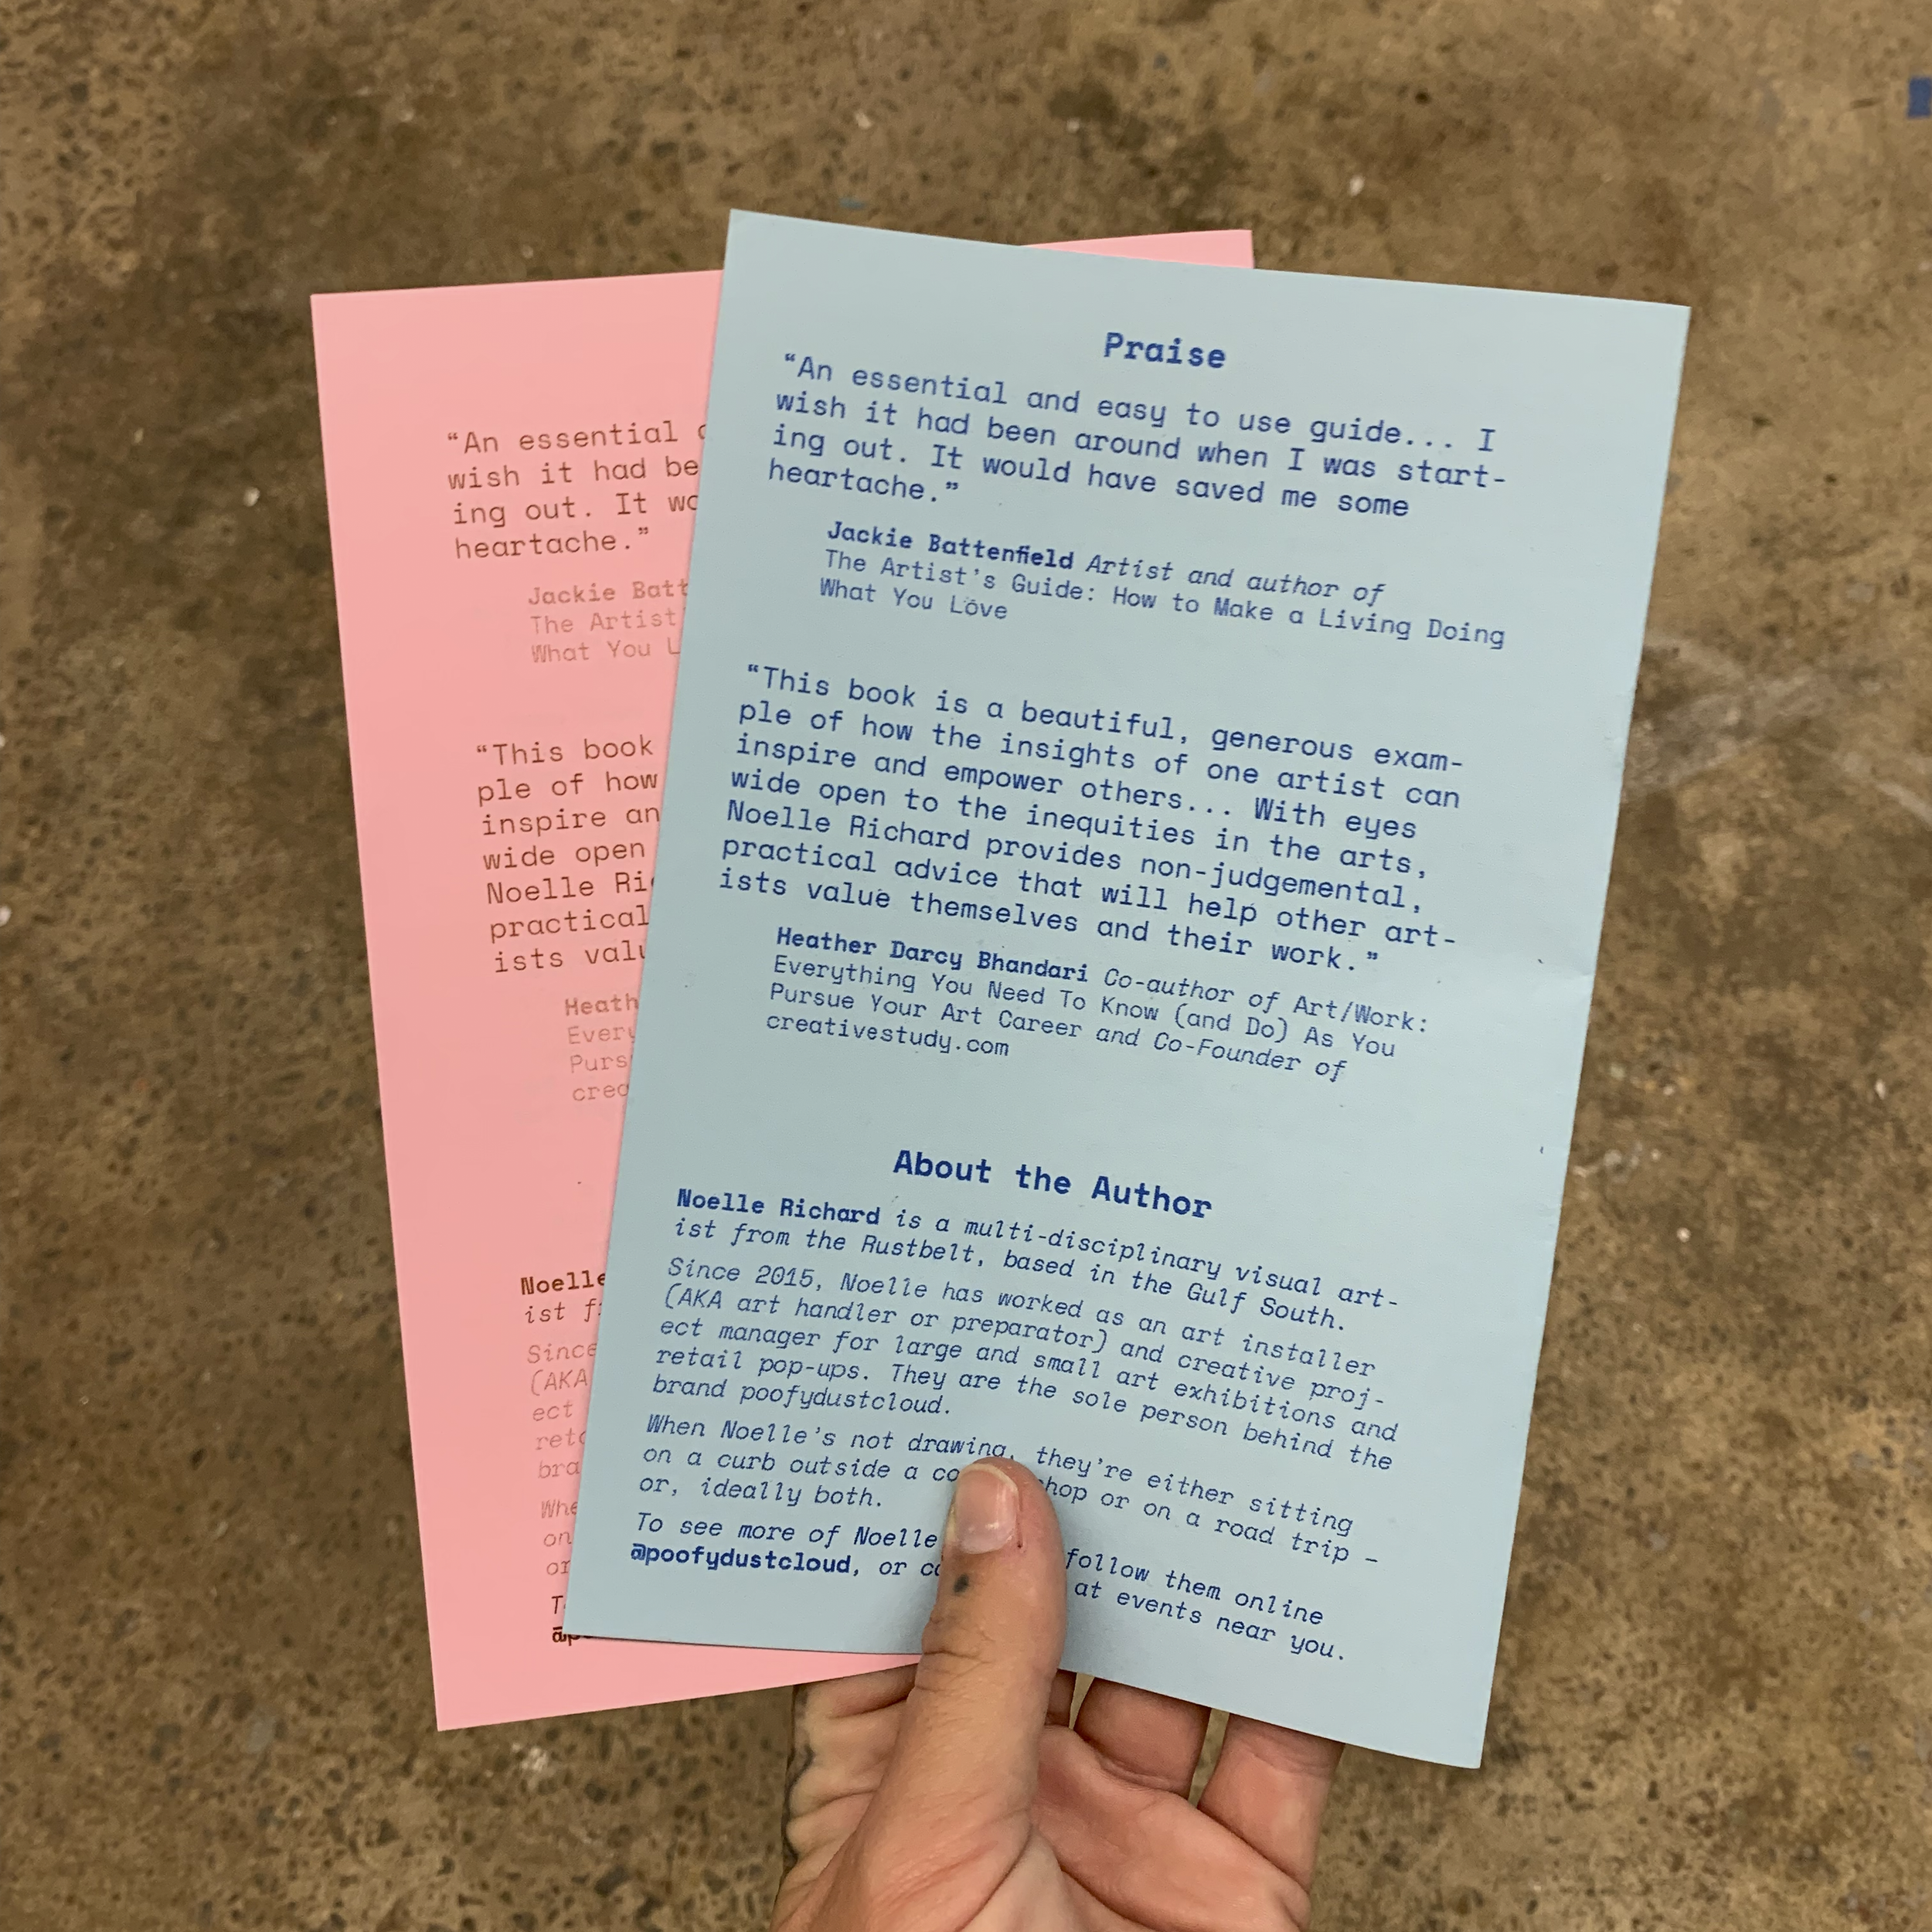 Praise
“An essential and easy to use guide... I
wish it had been around when I was start-
ing out. It would have saved me some
heartache.”
Jackie Battenfield Artist and author of
The Artist’s Guide: How to Make a Living Doing
What You Love
“This book is a beautiful, generous exam-
ple of how the insights of one artist can
inspire and empower others... With eyes
wide open to the inequities in the arts,
Noelle Richard provides non-judgemental,
practical advice that will help other art-
ists value themselves and their work.”
Heather Darcy Bhandari Co-author of Art/Work:
Everything You Need To Know (and Do) As You
Pursue Your Art Career and Co-Founder of
creativestudy.com
About the Author
Noelle Richard is a multi-disciplinary visual art-
ist from the Rustbelt, based in the Gulf South.
Since 2015, Noelle has worked as an art installer
(AKA art handler or preparator) and creative proj-
ect manager for large and small art exhibitions and
retail pop-ups. They are the sole person behind the
brand poofydustcloud.
When Noelle’s not drawing, they’re either sitting
on a curb outside a or on a road trip –
or, ideally both.
To see more of Noelle follow them online
@poofydustcloud, or at events near you.
“An essential
wish it had
ing out. It
heartache.”
Jackie
The Artist
What You
“This book
ple of how
inspire
wide open
Noelle
practical
ists
Noelle
ist
Since
(AKA
ect
on
or